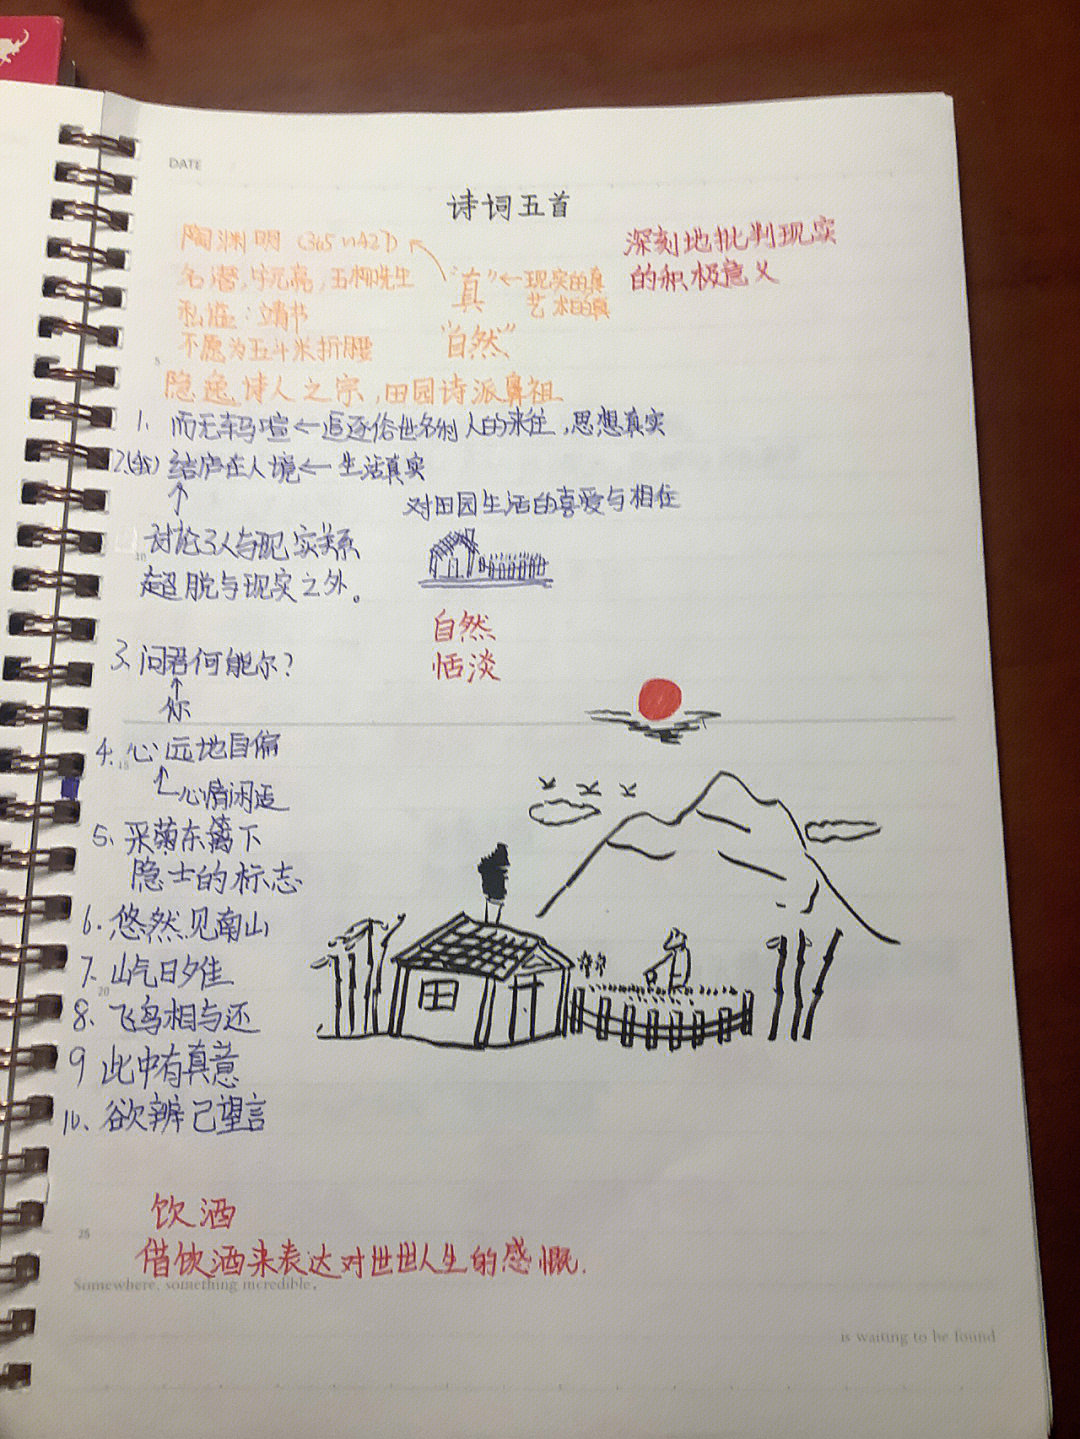 DATE
诗词五首
陶渊明 (365~427)
名潜,字元亮,五柳先生
私谥:靖节
不愿为五斗米折腰
"真"←现实的真
艺术的真
"自然"
深刻地批判现实
的积极意义
隐逸诗人之宗,田园诗派鼻祖
1. 而无车马喧←追逐俗世名利人的来往,思想真实
2.(我) 结庐在人境←生活真实
对田园生活的喜爱与相住
讨论了人与现实关系
超脱与现实之外。
自然
恬淡
3. 问君何能尔?
你
4. 心远地自偏
心情闲适
5. 采菊东篱下
隐士的标志
6. 悠然见南山
7. 山气日夕佳
8. 飞鸟相与还
9 此中有真意
10. 欲辨已忘言
饮酒
借饮酒来表达对世世人生的感慨.
Somewhere, something incredible,
is waiting to be found
5
10
15
20
25